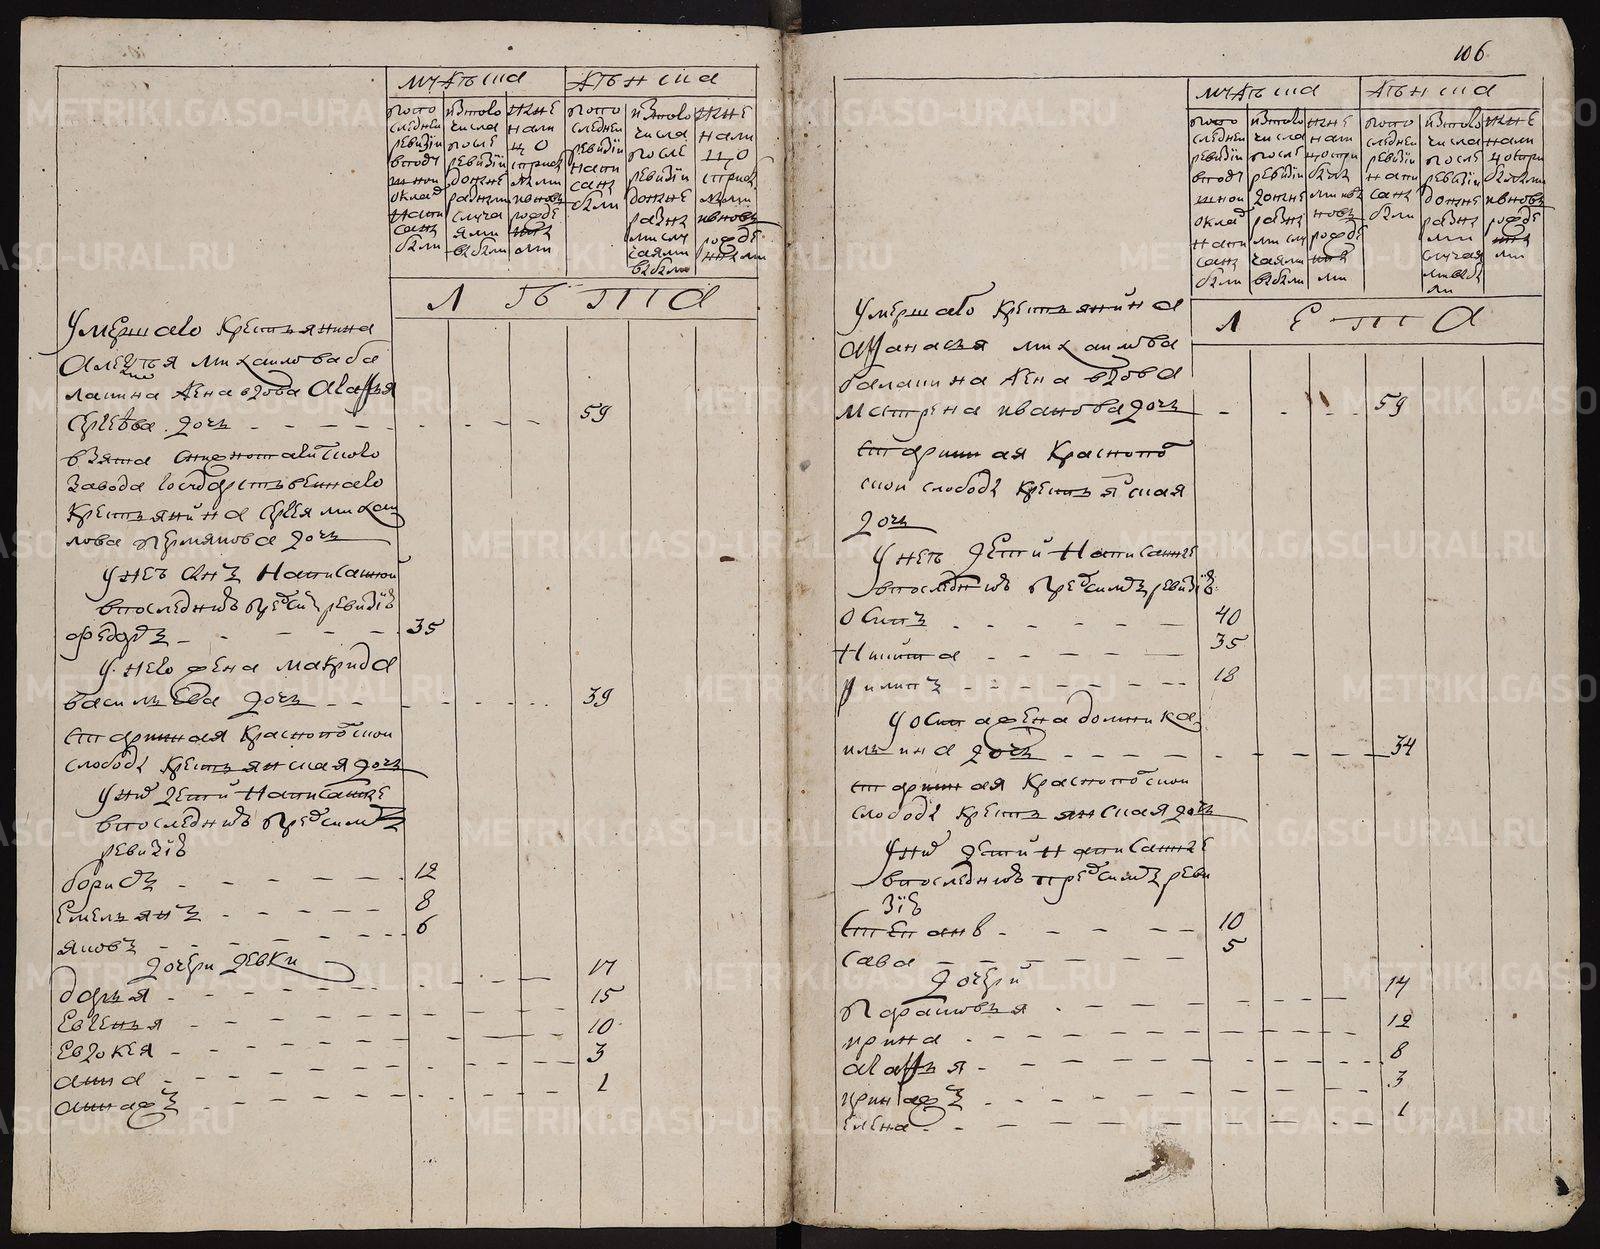 мужеска
женска
по последней ревизии в подушной оклад написанных были
из того числа после ревизии до ныне разными случаями выбыли
ныне налицо с прибылыми и вновь рожденными
по последней ревизии написаны были
из того числа после ревизии до ныне разными случаями выбыли
ныне налицо с прибылыми и вновь рожденными
лета
умершаго крестьянина
алексея михаилова ба
лакина жена вдова агафья
сергеева дочь 59
взята
завода государственнаго
крестьянина сергея михаи
лова пермякова дочь
у неѣ сынъ написанной
в последнюю пред симъ ревизiю
федоръ 35
у него жена макрида
васильева дочь 39
старинная краснопольской
слободы крестьянская дочь
у них дети написанные
в последнюю пред симъ
ревизiю
борисъ 12
емельянъ 8
яковъ 6
дочери девки
дарья 17
евгенья 15
евдокея 10
анна 3
анна ж 1
106
мужеска
женска
по последней ревизии в подушной оклад написаны были
из того числа после ревизии до ныне разными случаями выбыли
ныне налицо с прибылыми и вновь рожденными
по последней ревизии написаны были
из того числа после ревизии до ныне разными случаями выбыли
ныне налицо с прибылыми и вновь рожденными
лета
умершаго крестьянина
афанасья михаилова
балакина жена вдова
матрена иванова дочь 59
старинная краснополь
ской слободы крестьянская
дочь
у неѣ дети написанные
в последнюю пред симъ ревизiю
осипъ 40
никита 35
филипъ 18
у осипа жена домника
ильина дочь 34
старинная краснопольской
слободы крестьянская дочь
у них дети написанные
в последнюю пред симъ реви
зiю
степанъ 10
сава 5
дочери
парасковья 14
ирина 12
агафья 8
ирина ж 3
елена 1
METRIKI.GASO-URAL.RU